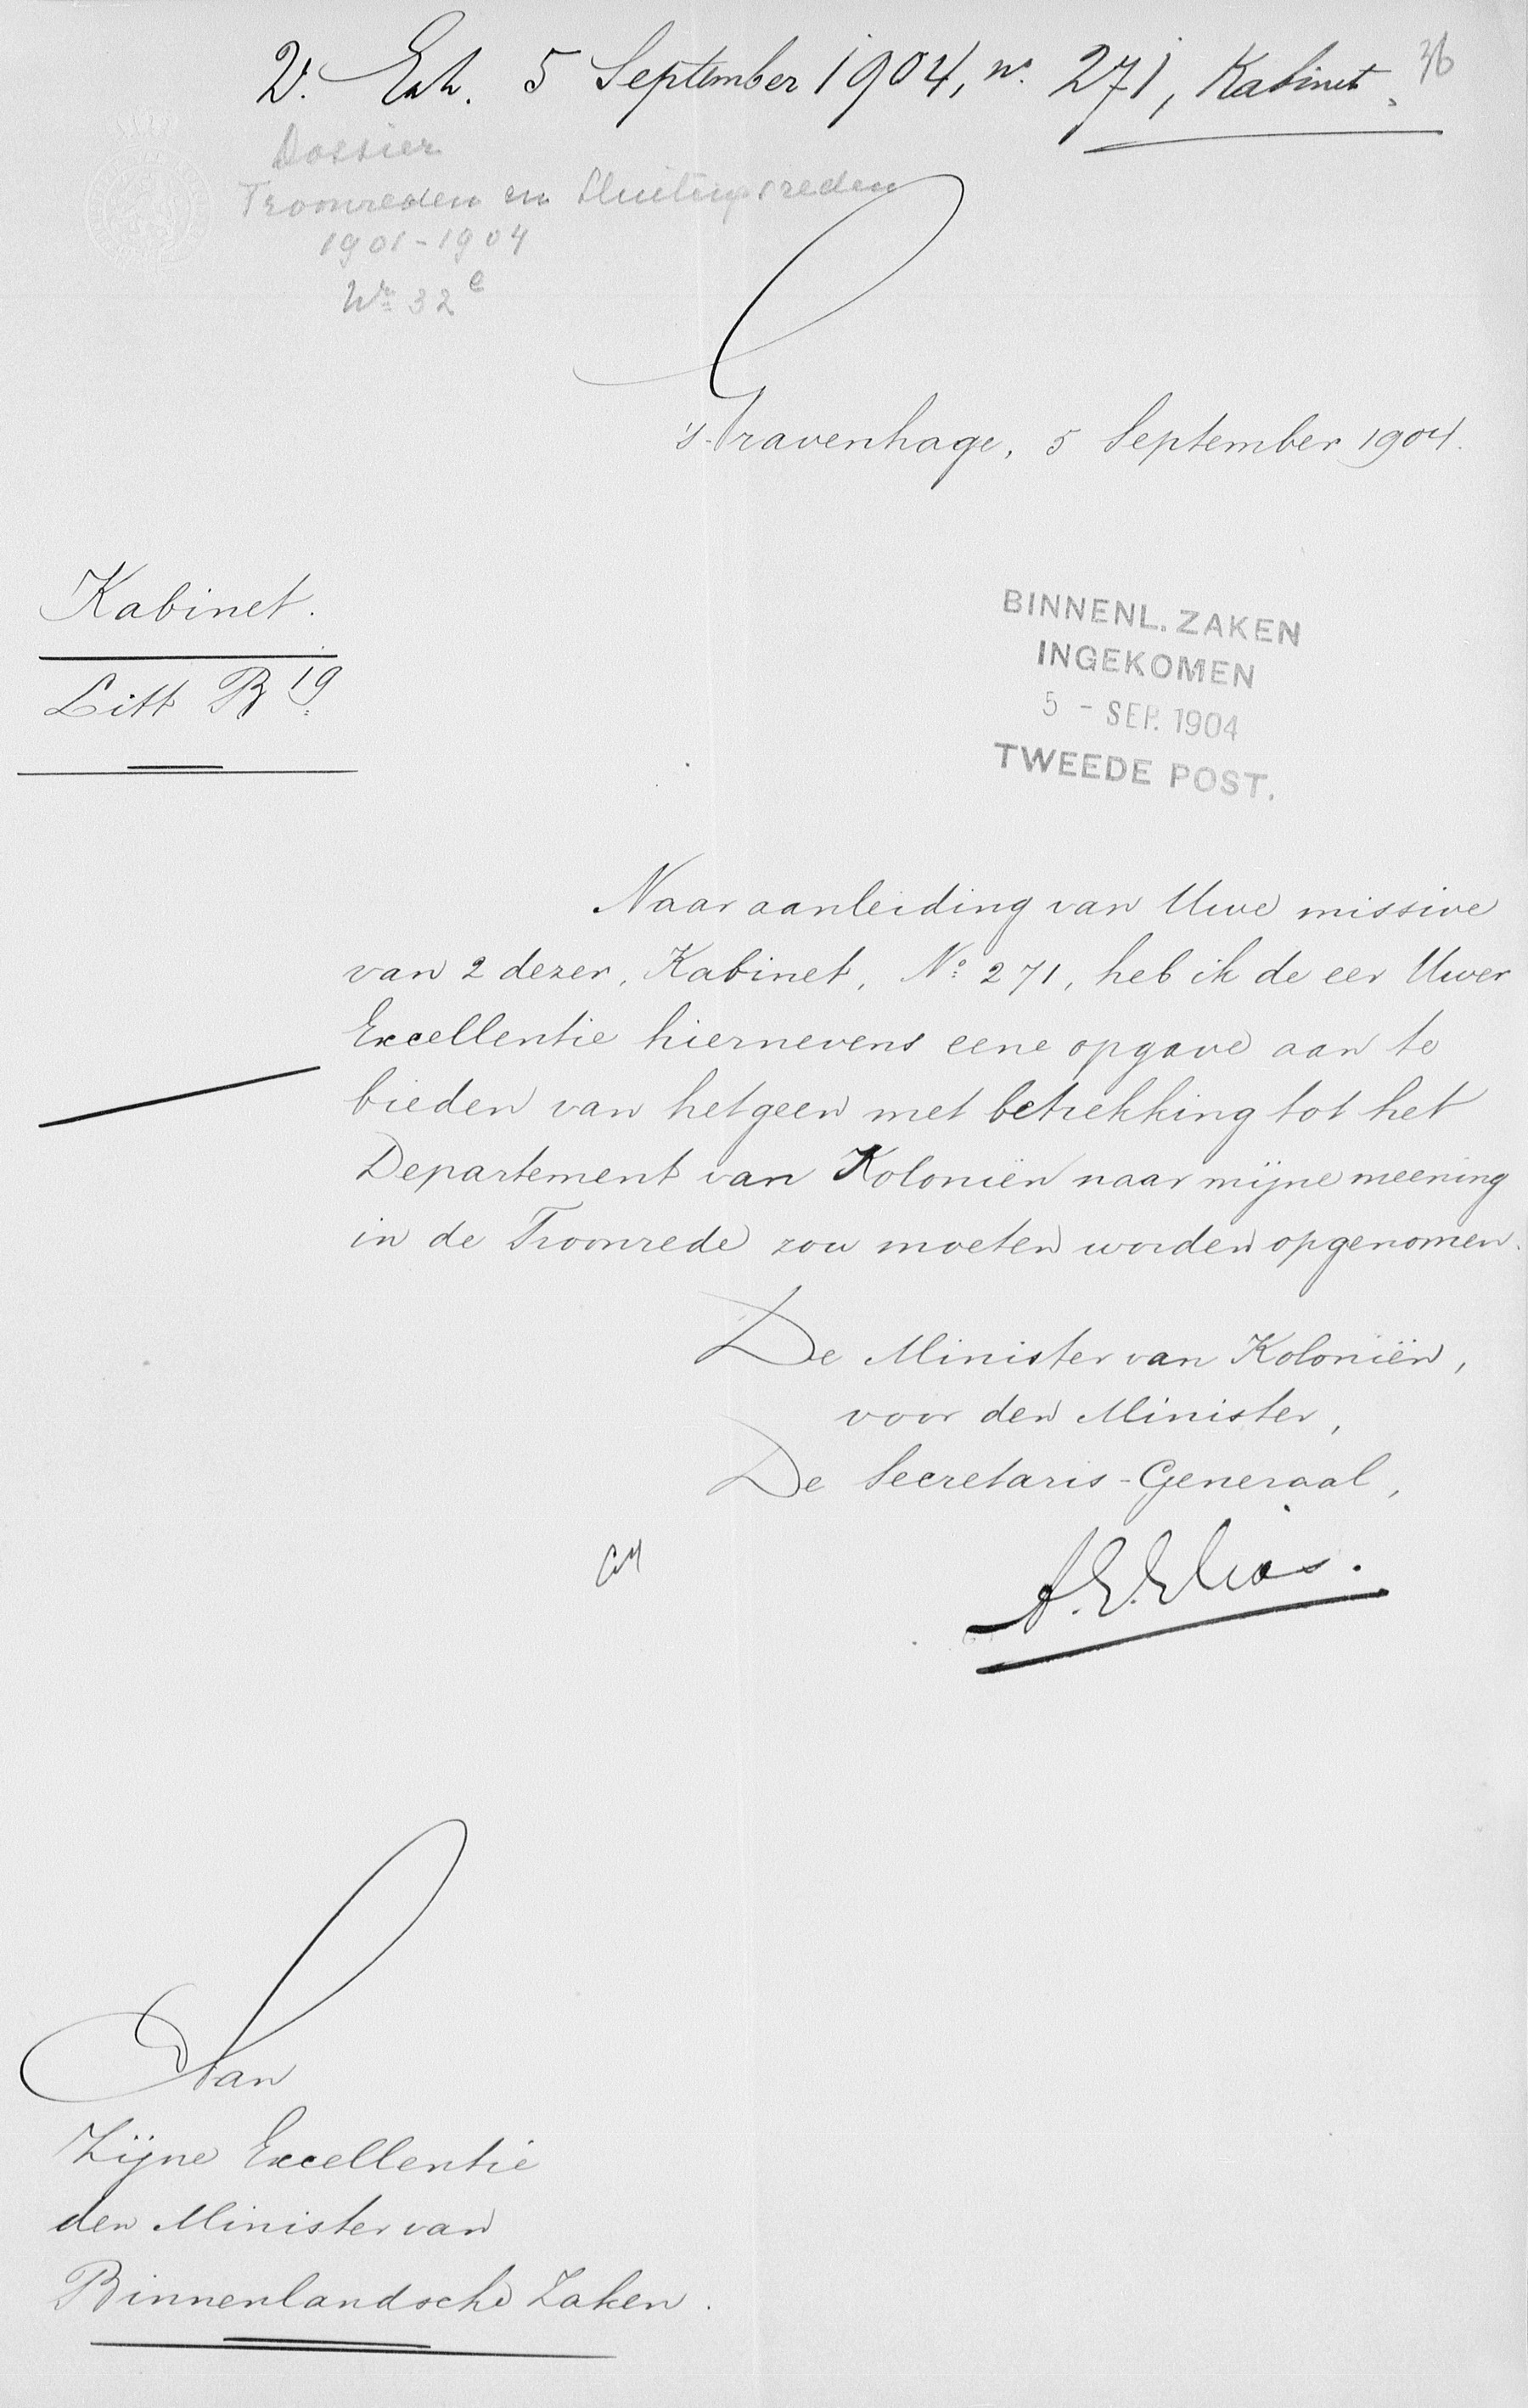 V. Exh. 5 September 1904, no. 271, Kabinet.
36
Dossier
Troonreden en Sluitingsreden
1901-1904
No 32 e
's-Gravenhage, 5 September 1904.
Kabinet.
Litt B 19
BINNENL. ZAKEN
INGEKOMEN
5 - SEP. 1904
TWEEDE POST.
Naar aanleiding van Uwe missive
van 2 dezer, Kabinet, No: 271, heb ik de eer Uwer
Excellentie hiernevens eene opgave aan te
bieden van hetgeen met betrekking tot het
Departement van Koloniën naar mijne meening
in de Troonrede zou moeten worden opgenomen.
De Minister van Koloniën,
voor den Minister,
De Secretaris-Generaal,
A.E. Elias.
Aan
Zijne Excellentie
den Minister van
Binnenlandsche Zaken.